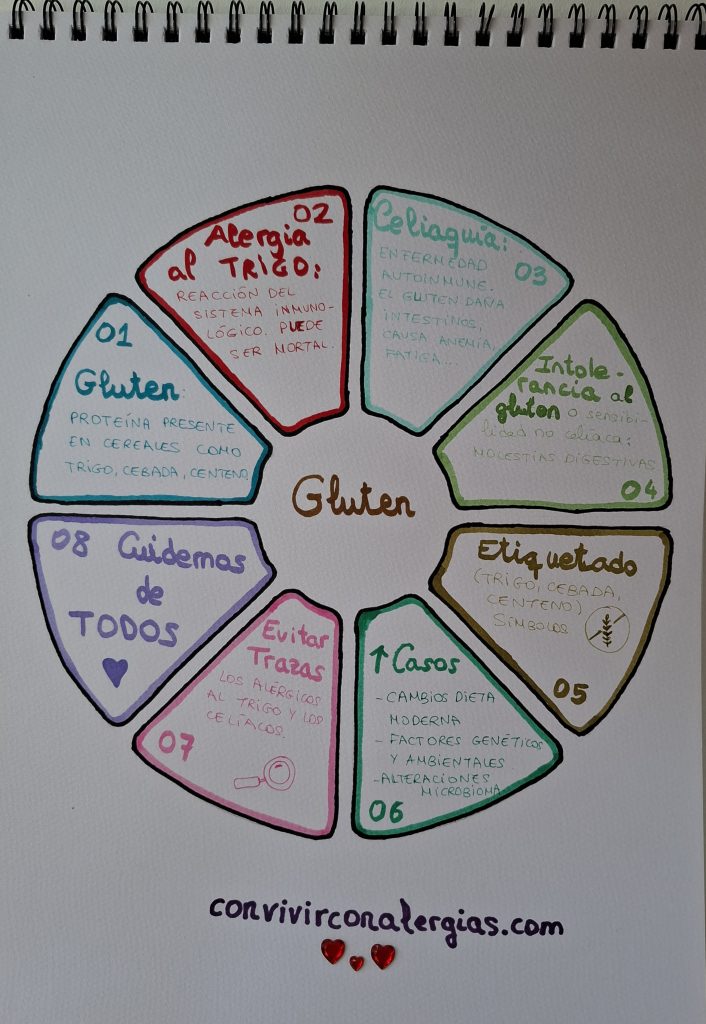 01
Gluten:
PROTEÍNA PRESENTE
EN CEREALES COMO
TRIGO, CEBADA, CENTENO
02
Alergia
al TRIGO:
REACCIÓN DEL
SISTEMA INMUNO-
LÓGICO. PUEDE
SER MORTAL.
Celiaquía:
03
ENFERMEDAD
AUTOINMUNE.
EL GLUTEN DAÑA
INTESTINOS,
CAUSA ANEMIA,
FATIGA...
Intole-
rancia al
gluten o sensibi-
lidad no celíaca:
MOLESTIAS DIGESTIVAS
04
Etiquetado
(TRIGO, CEBADA,
CENTENO)
SÍMBOLOS
05
↑ Casos
- CAMBIOS DIETA
MODERNA
- FACTORES GENÉTICOS
Y AMBIENTALES
- ALTERACIONES
MICROBIOMA
06
Evitar
Trazas
LOS ALÉRGICOS
AL TRIGO Y LOS
CELÍACOS.
07
08 Cuidemos
de
TODOS
Gluten
convivirconalergias.com